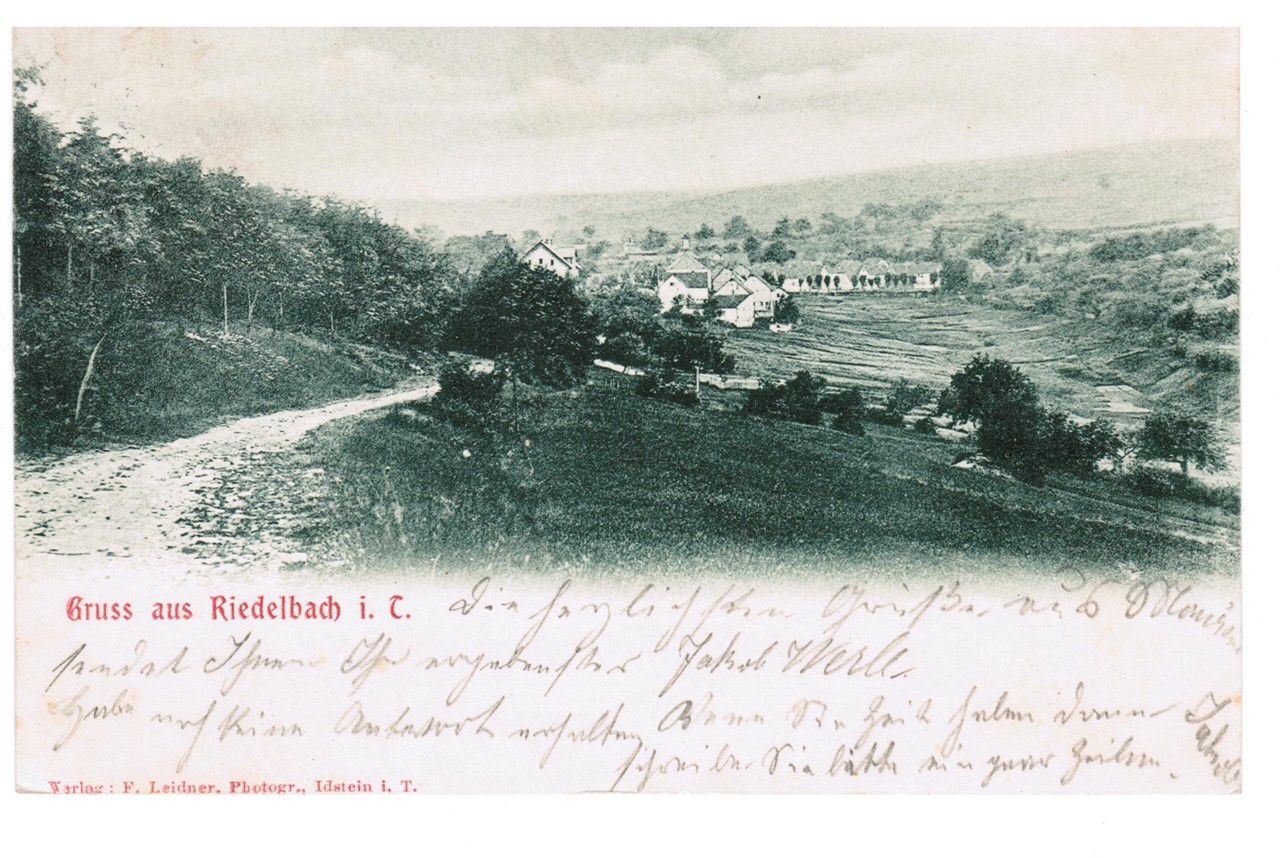 Gruss aus Riedelbach i. T.
Die herzlichsten Grüße aus
sendet Ihnen Ihr ergebenster Jakob Werle.
Habe noch keine Antwort erhalten Wenn Sie Zeit haben dann
schreiben Sie bitte ein paar Zeilen.
Jakob
Verlag: F. Leidner, Photogr., Idstein i. T.